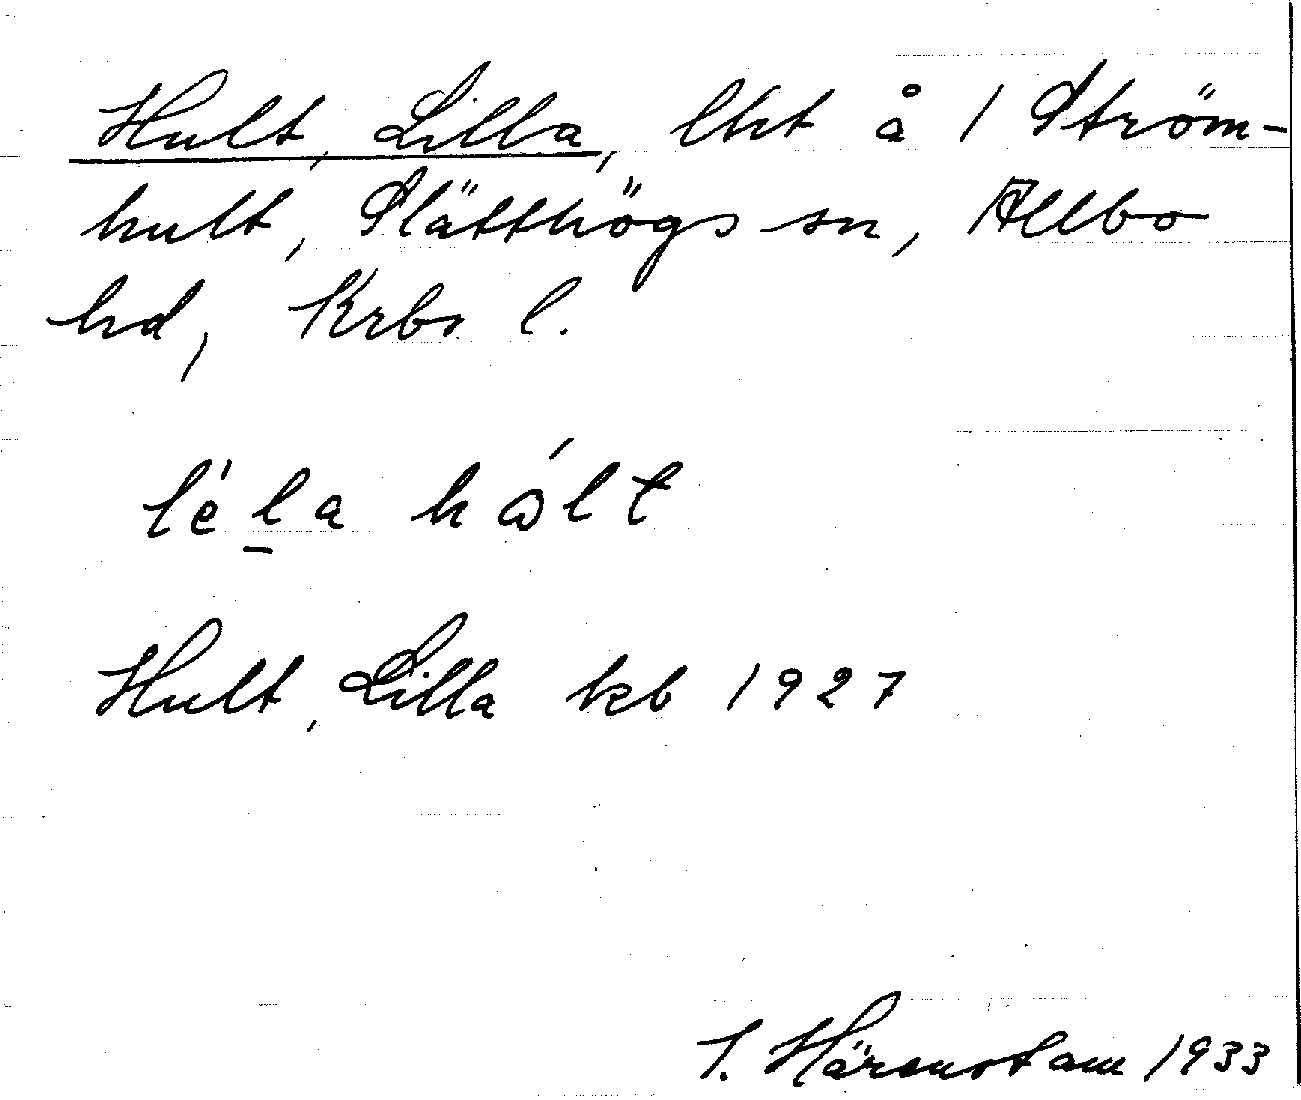 Hult, Lilla, lht å 1 Ström-
hult, Slätthögs sn, Allbo
hd, Krbs l.
léla hólt
Hult, Lilla kb 1927
1933